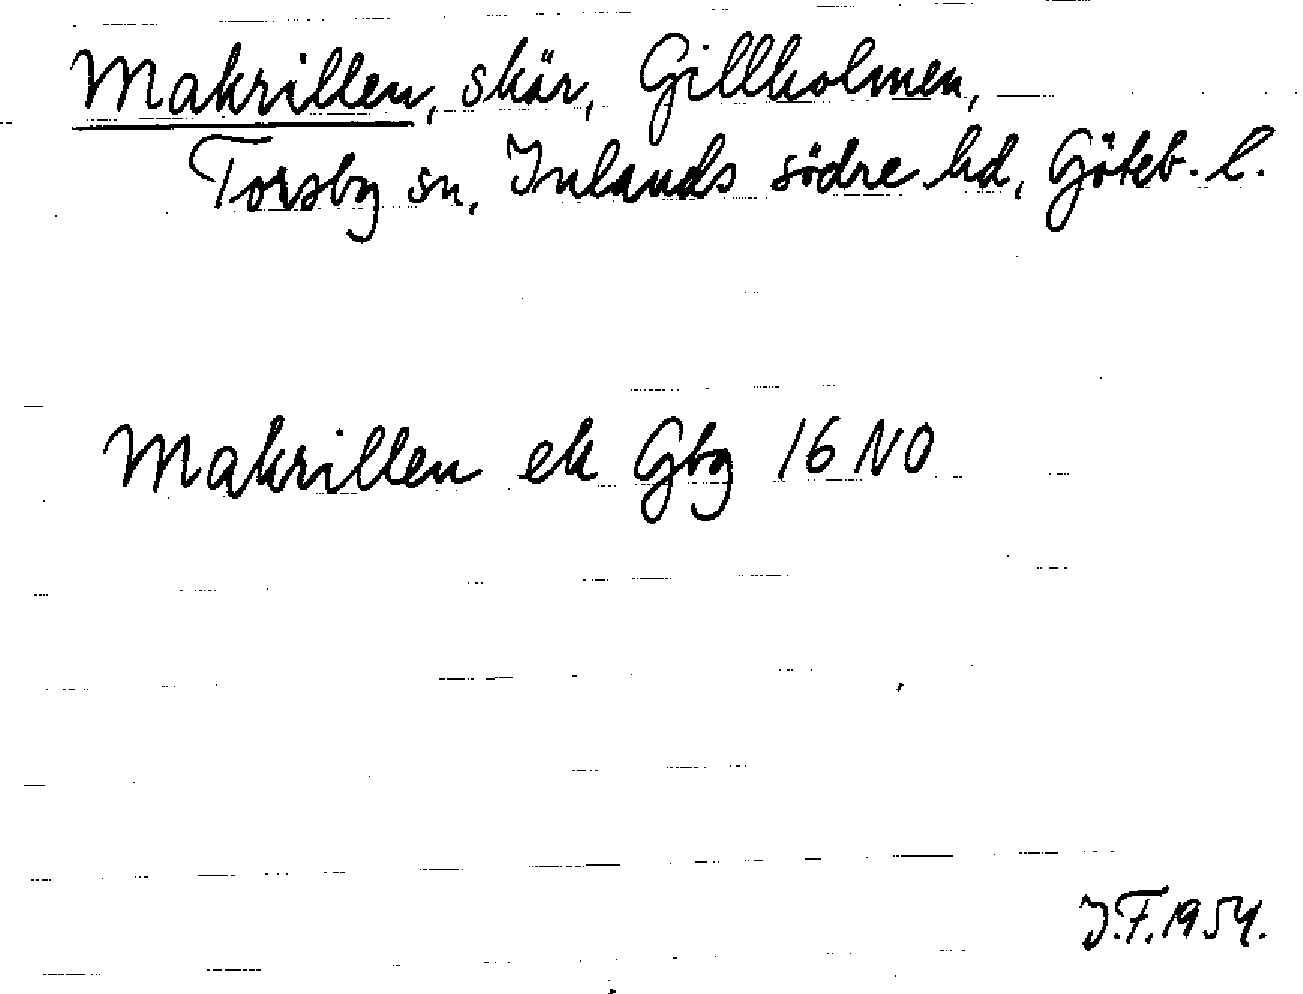 Makrillen, skär, Gillholmen,
Torsby sn, Inlands södre hd, Göteb. l.
Makrillen ek Gbg 16 NO
J.F. 1954.